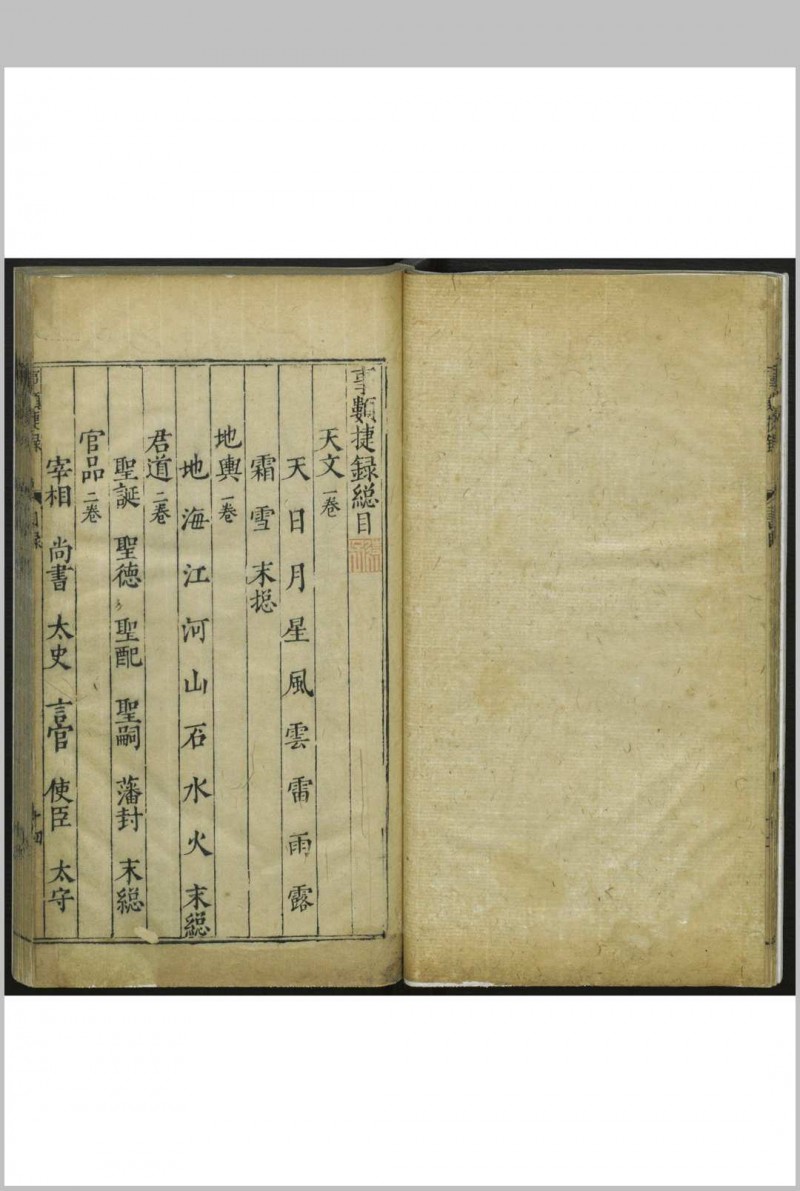 事類捷録緫目
天文 一卷
天 日 月 星 風 雲 雷 雨 露
霜 雪 末捴
地輿 一卷
地 海 江 河 山 石 水 火 末緫
君道 二卷
聖誕 聖德 聖配 聖嗣 藩封 末緫
官品 二卷
宰相 尚書 太史 言官 使臣 太守